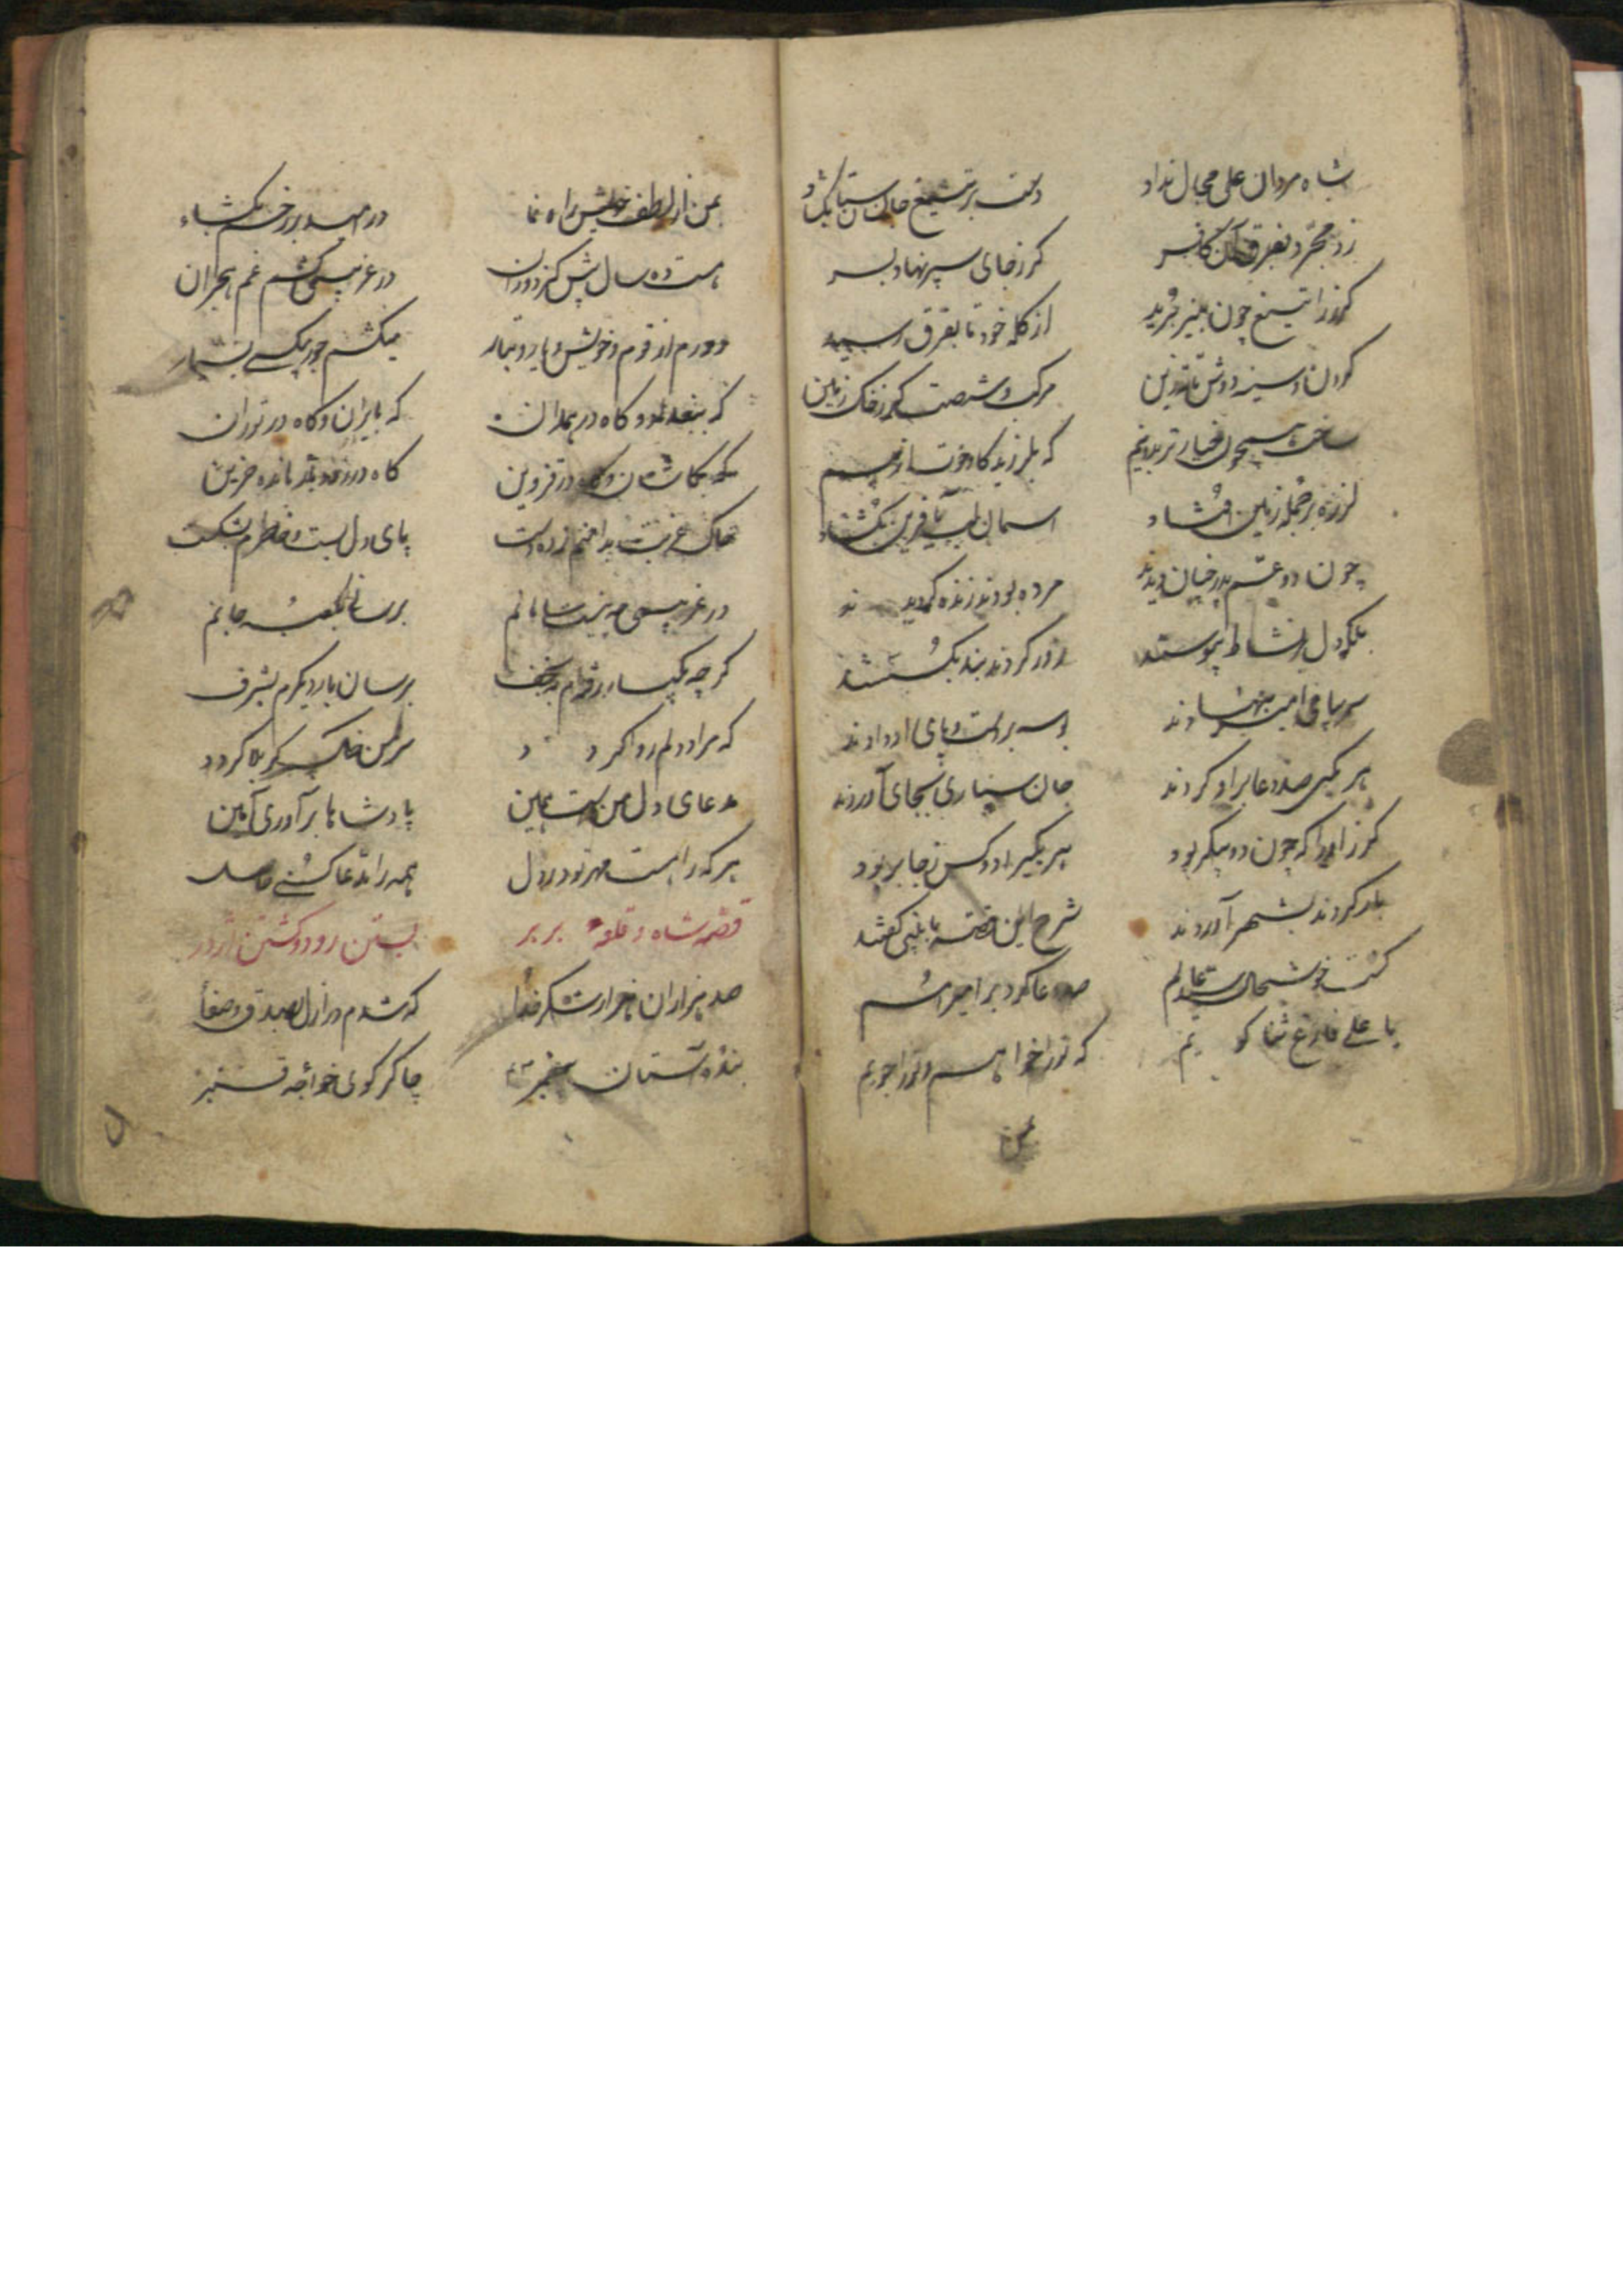 شاه مردان علی مجال نداد دست بر تیغ جان ستان بکشاد
زد مجرد بفرق آن کافر گرز جای سپر نهاد بسر
گرز را تیغ چون پنیر برید از کله خود تا بفرق رسید
گردن و سینه دوش تا زین مرکب و شصت گز ز خاک زمین
ساخت همچون خیار تر بدو نیم که بلرزید گاو حوت از بیم
لرزه بر جمله زمین افتاد آسمان لب بآفرین بگشاد
چون دو عم پدر چنان دیدند مرده بودند زنده گردیدند
بلکه دل با نشاط پیوستند زور کردند بند بگسستند
سر بپای امیر بنهادند بوسه بر دست و پای او دادند
هر یکی صد دعا بر او کردند جان سپاری بجای آوردند
گرز او را که چون دو پیکر بود
بار کردند بشهر آوردند شرح این قصه با نبی گفتند
گشت خوشحال سید عالم صد دعا کرد بر امیر
یا علی فارغ شما گویم که ترا خواهم و ترا جویم
بمن
بمن از لطف خویش راه نما در امید بر رخم بگشاء
هست ده سال پیش کز دوران در غریبی کشم غم هجران
دورم از قوم و خویش و یار و تبار میکشم جور بیکسی بسیار
که ببغداد و گاه در همدان که بایران و گاه در توران
که بکاشان و گه در قزوین گاه در مانده حزین
خاک غربت بدامنم زده دست پای دل بست و خاطرم بشکست
در غریبی مه پریشانم برسان بکعبه جانم
گرچه یکبار رفته‌ام بنجف برسان بار دیگرم بشرف
که مراد دلم روا گردد سر من خاک کربلا گردد
مدعای دل من است همین پادشاها برآوری آمین
هر که را هست مهر تو در دل همه را مدعا کنی حاصل
قصه شاه و قلعه بربر بستن رود و کشتن اژدر
صد هزاران هزار شکر خدا که شدم در ازل بصدق و صفا
بنده آستان پیغمبر چاکر کوی خواجه قنبر